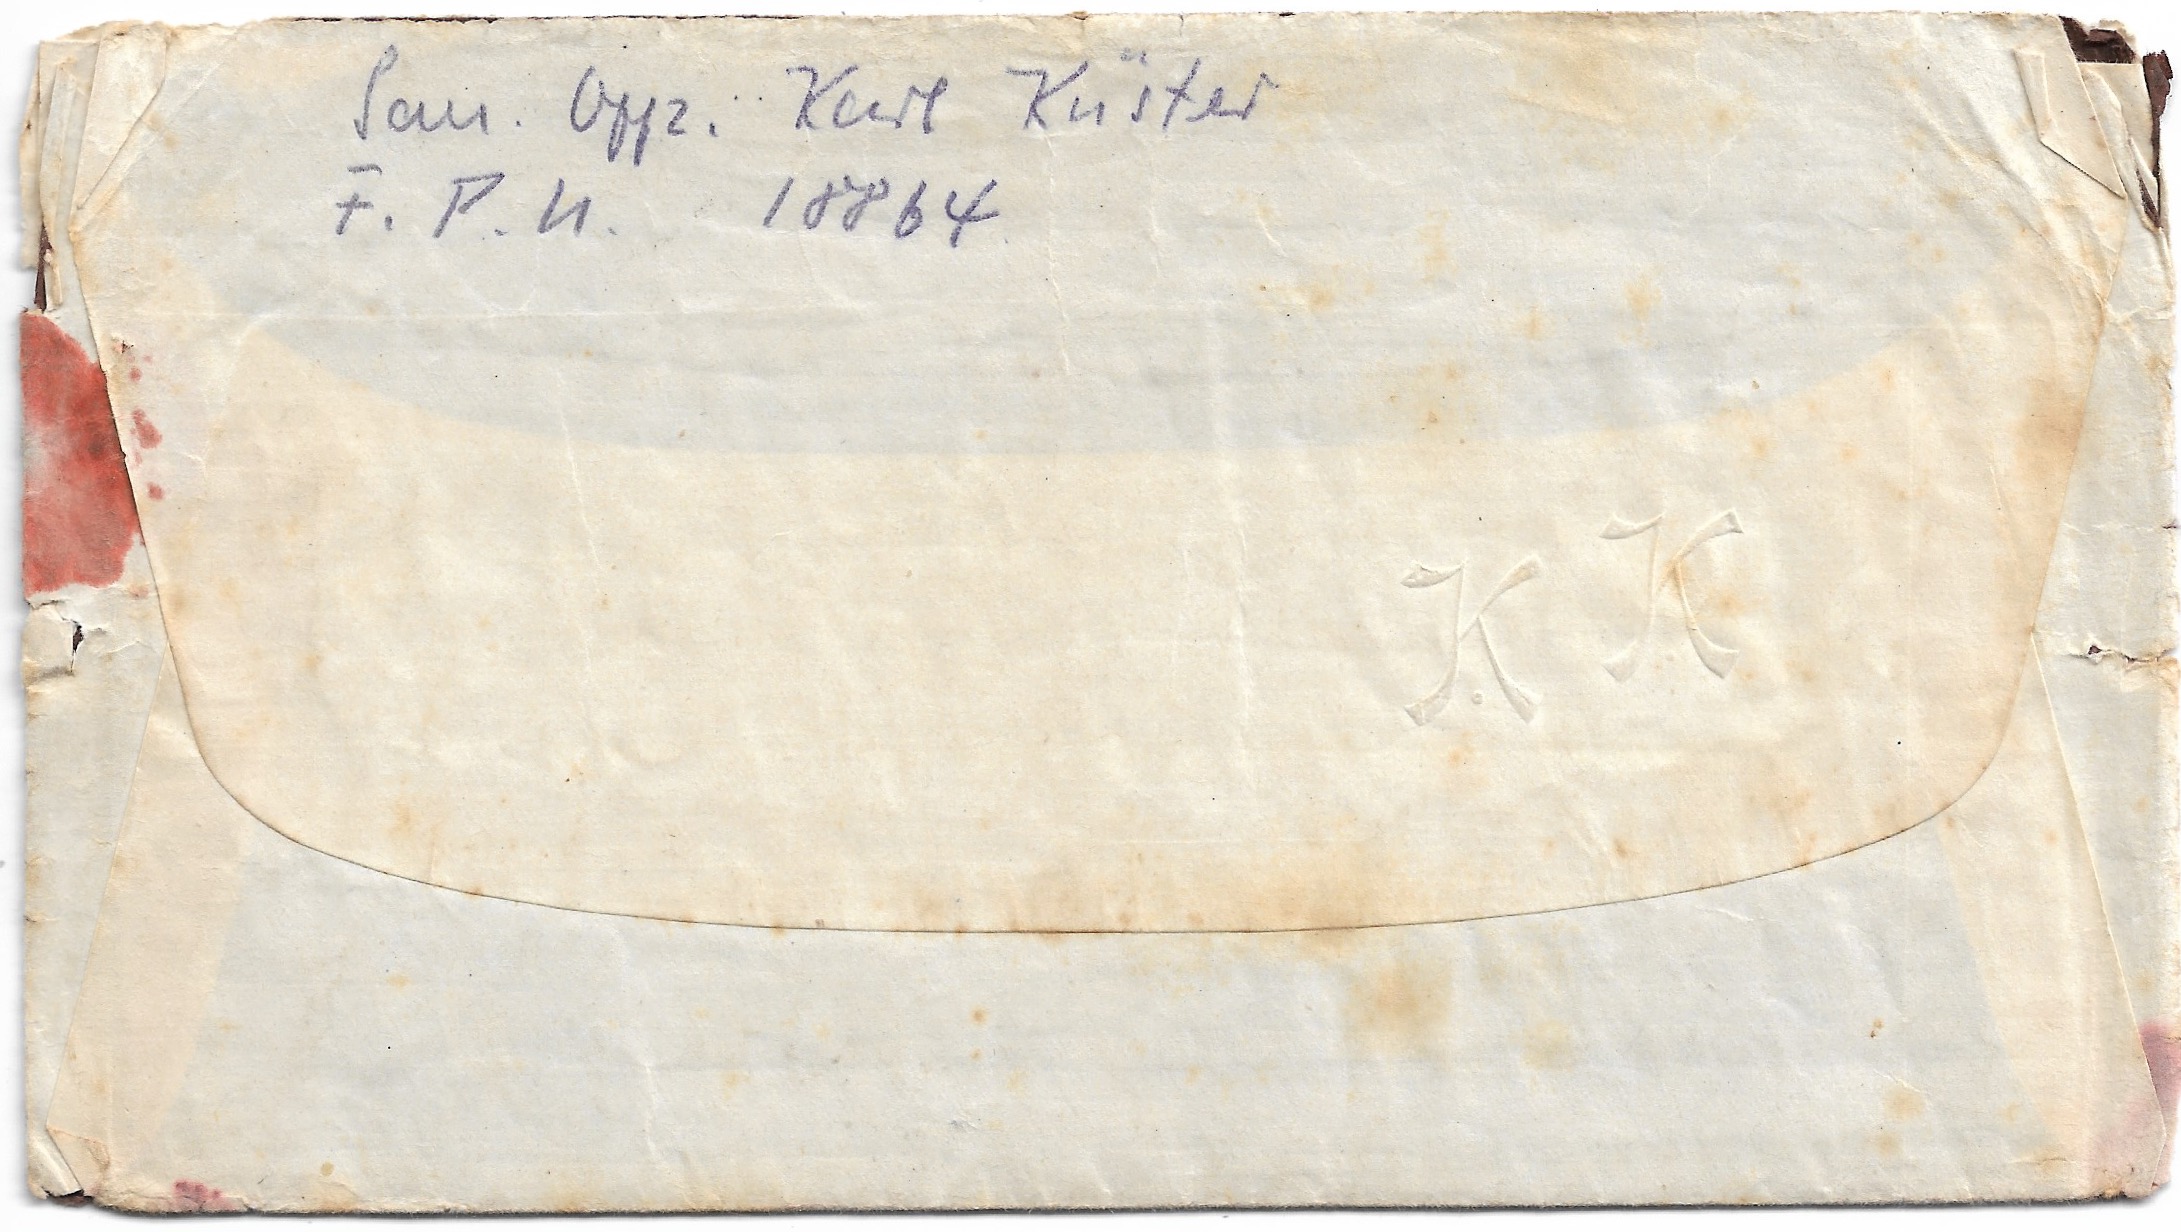 San. Offz. Karl Küster
F. P. N. 18864
K. K